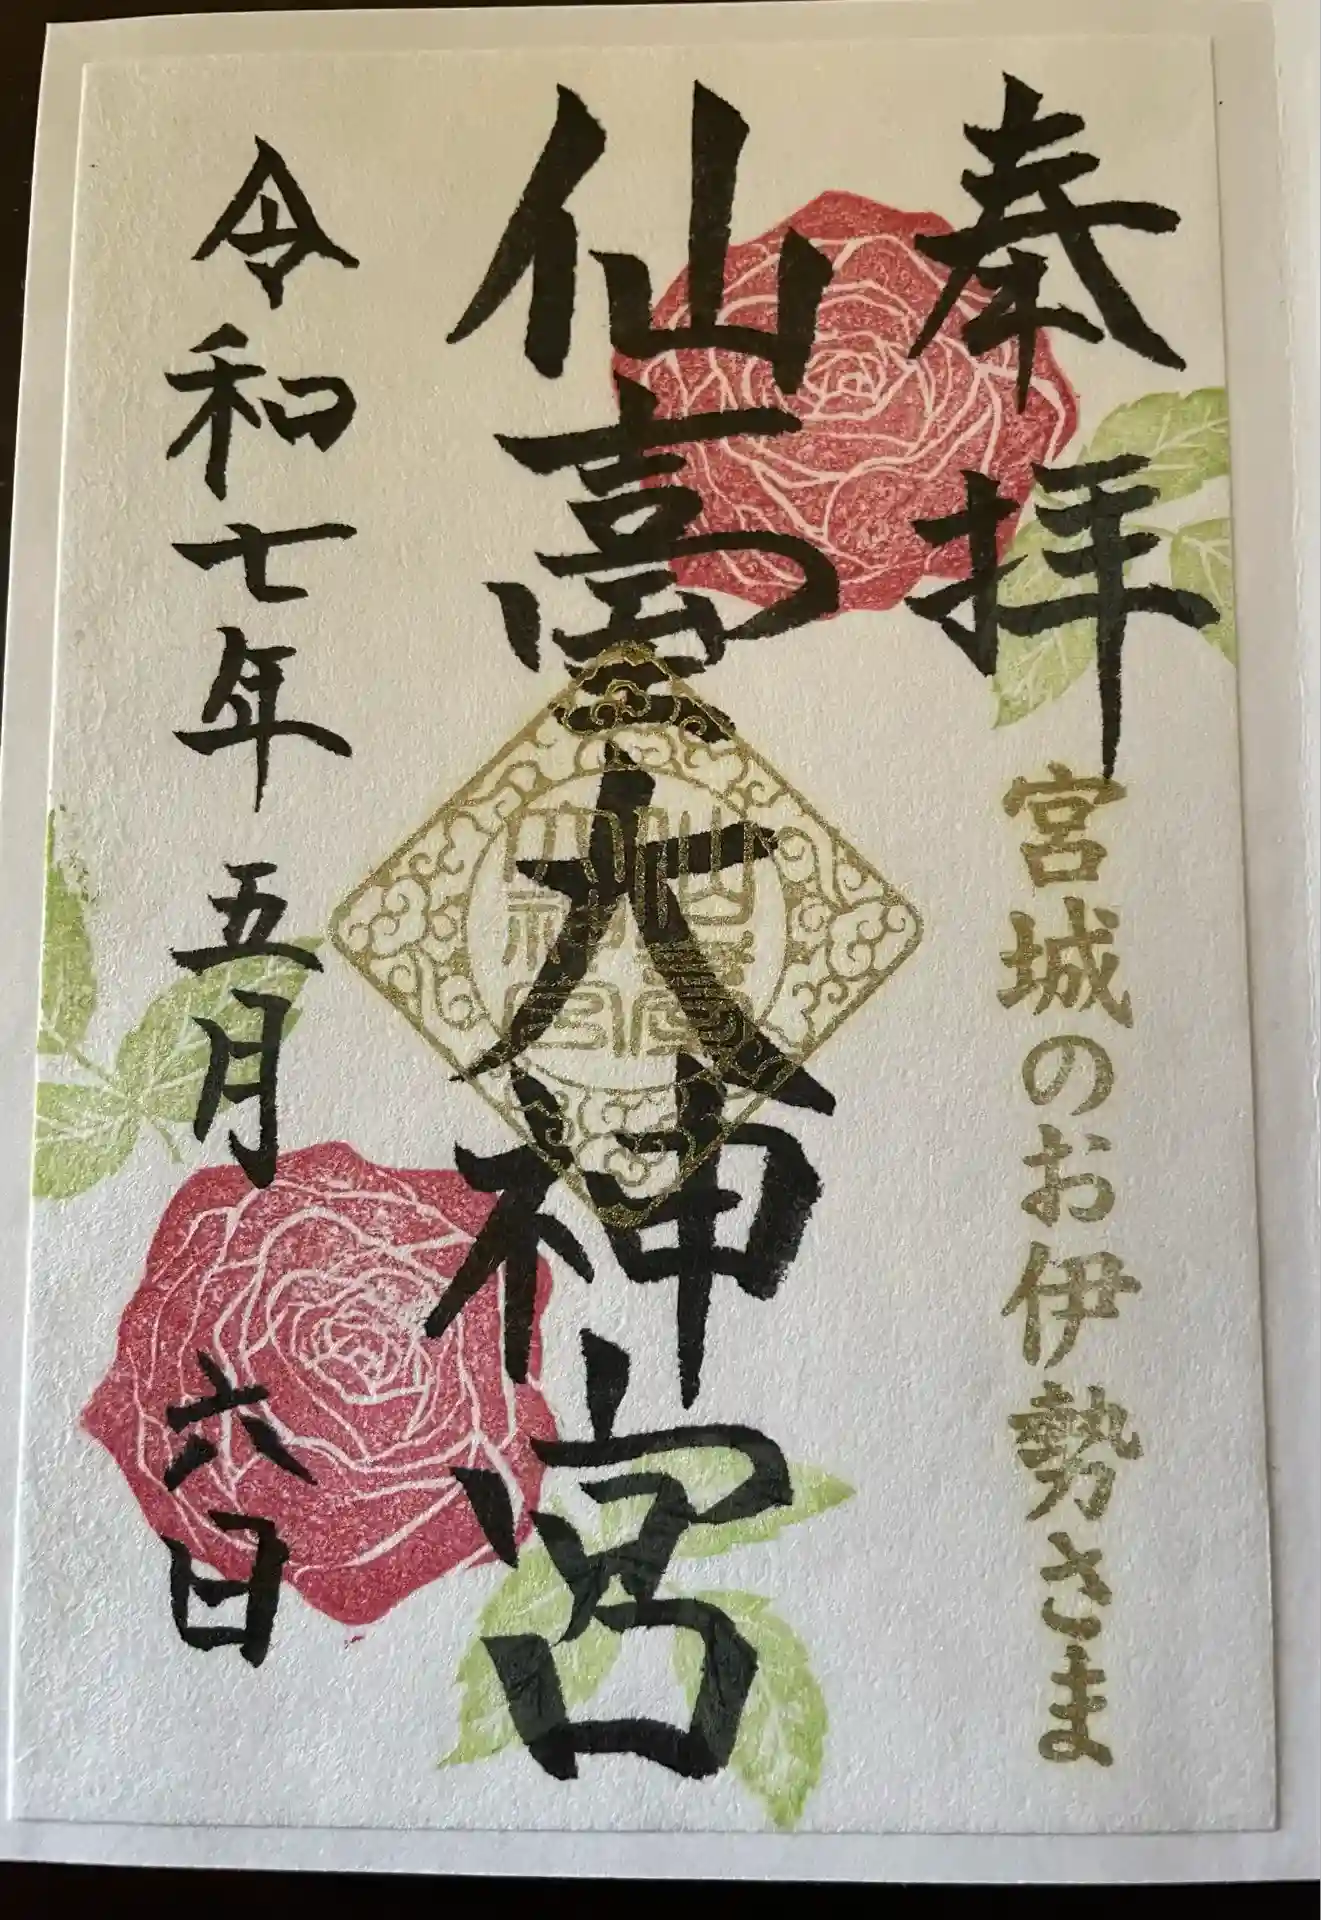 奉拝
宮城のお伊勢さま
仙臺大神宮
仙臺
大神宮
令和七年五月六日